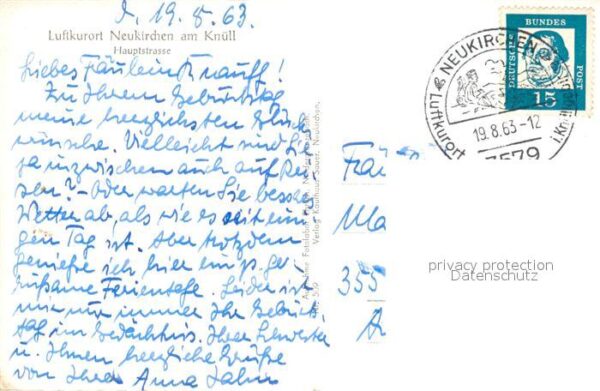 d. 19. 8. 63.
Luftkurort Neukirchen am Knüll
Hauptstrasse
Liebes Fräulein Knauff!
Zu Ihrem Geburtstag
meine herzlichsten Glück-
wünsche. Vielleicht sind Sie
ja inzwischen auch auf Rei-
sen? - Oder warten Sie besseres
Wetter ab, als wie es seit eini-
gen Tag ist. Aber trotzdem
genieße ich hier ein p.
Ferientage. Leider ist
mir nur immer Ihr Geburts-
tag im Gedächtnis. Ihrer Schwester
u. Ihnen herzliche Grüße
von Ihrer Anna Jahn
Verlag Kaufhaus Sauer, Neukirchen,
DEUTSCHE
BUNDES
POST
15
NEUKIRCHEN
Luftkurort
i. Knüllgeb.
19.8.63-12
3579
Frä
Ma
355
privacy protection
Datenschutz